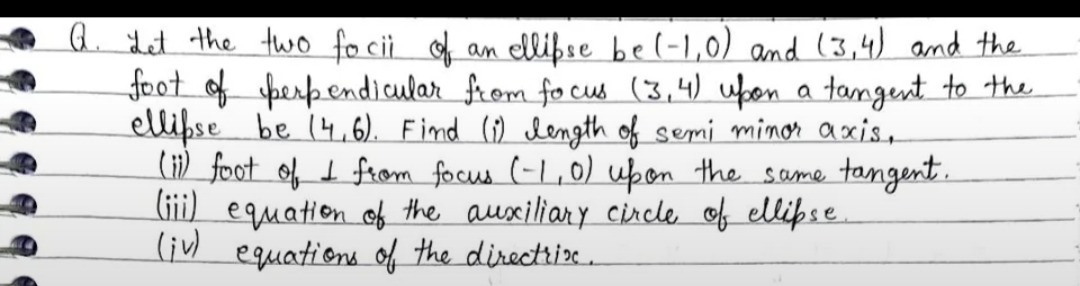 Q. Let the two focii of an ellipse be (-1,0) and (3,4) and the
foot of perpendicular from focus (3,4) upon a tangent to the
ellipse be (4,6). Find (i) length of semi minor axis,
(ii) foot of ⊥ from focus (-1,0) upon the same tangent.
(iii) equation of the auxiliary circle of ellipse.
(iv) equations of the directrix.